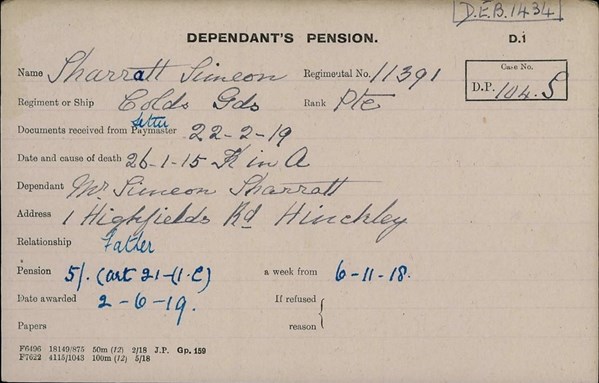 D.E.B.1434
DEPENDANT'S PENSION. D.1
Name Sharratt Simeon Regimental No. 11391 Case No.
Regiment or Ship Colds Gds Rank Pte D.P. 104.S
letter
Documents received from Paymaster 22-2-19
Date and cause of death 26-1-15 K in A
Dependant Mr Simeon Sharratt
Address 1 Highfields Rd Hinckley
Relationship Father
Pension 5/. (art 21-(1.C) a week from 6-11-18.
Date awarded 2-6-19. If refused
Papers reason
F6496 18149/875 50m (12) 2/18 J.P. Gp. 159
F7622 4115/1043 100m (12) 5/18